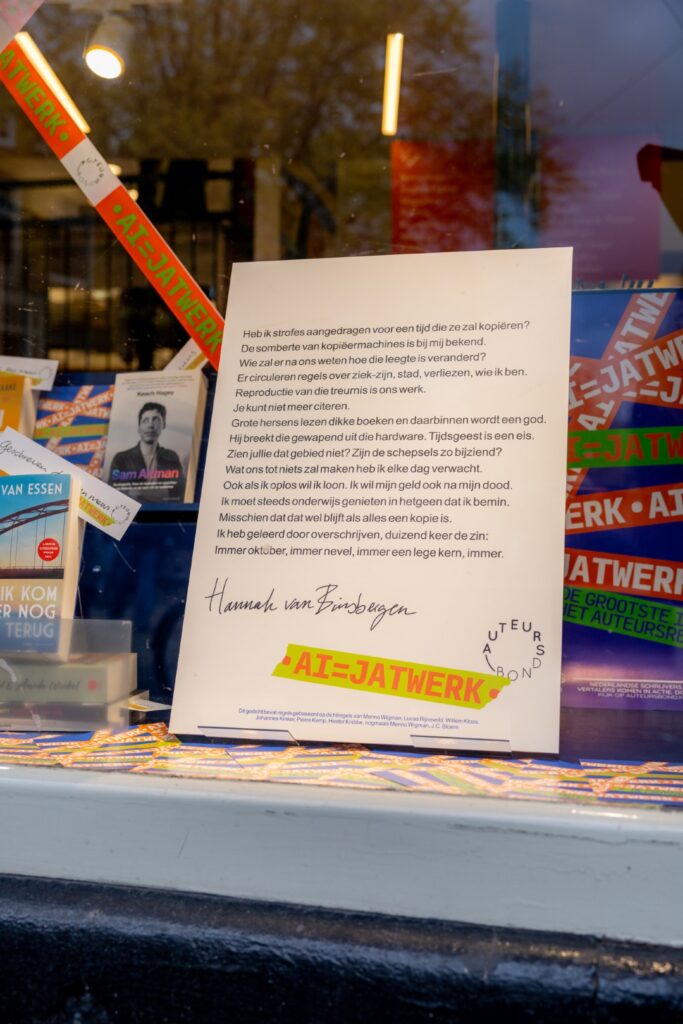 AI=JATWERK
AUTEURSBOND
AI=JATWERK
Heb ik strofes aangedragen voor een tijd die ze zal kopiëren?
De somberte van kopieermachines is bij mij bekend.
Wie zal er na ons weten hoe die leegte is veranderd?
Er circuleren regels over ziek-zijn, stad, verliezen, wie ik ben.
Reproductie van die treurnis is ons werk.
Je kunt niet meer citeren.
Grote hersens lezen dikke boeken en daarbinnen wordt een god.
Hij breekt die gewapend uit die hardware. Tijdsgeest is een eis.
Zien jullie dat gebied niet? Zijn de schepsels zo bijziend?
Wat ons tot niets zal maken heb ik elke dag verwacht.
Ook als ik oplos wil ik loon. Ik wil mijn geld ook na mijn dood.
Ik moet steeds onderwijs genieten in hetgeen dat ik bemin.
Misschien dat dat wel blijft als alles een kopie is.
Ik heb geleerd door overschrijven, duizend keer de zin:
Immer oktober, immer nevel, immer een lege kern, immer.
Hannah van Binsbergen
AUTEURSBOND
•AI=JATWERK•
Dit gedicht bevat regels gebaseerd op dichtregels van Menno Wigman, Lucas Rijneveld, Willem Kloos,
Johannes Kinker, Pierre Kemp, Hester Knibbe, nogmaals Menno Wigman, J.C. Bloem
Keach Hagey
Sam Altman
VAN ESSEN
IK KOM
ER NOG
TERUG
AI=JATWERK
AI=JATW
AI=JATWERK
ERK • AI
JATWERK
DE GROOTSTE
HET AUTEURSRE
NEDERLANDSE SCHRIJVERS
VERTALERS KOMEN IN ACTIE
KIJK OP AUTEURSBOND